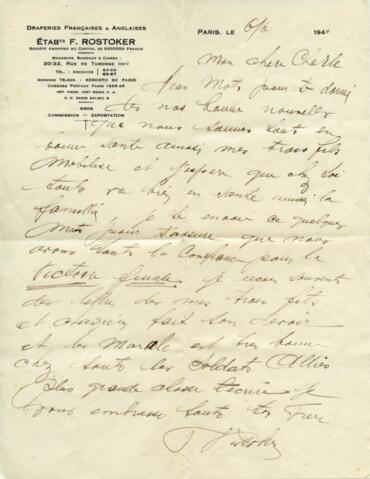 DRAPERIES FRANÇAISES & ANGLAISES
ÉTABTS F. ROSTOKER
SOCIÉTÉ ANONYME AU CAPITAL DE 2100000 FRANCS
MAGASINS, BUREAUX & CAISSE :
20/22, RUE DE TURENNE (IVE)
TÉL. : ARCHIVES
CHÈQUES POSTAUX PARIS
GROS
COMMISSION - EXPORTATION
PARIS, LE 6/6 1940
Mon cher Charle
mots pour te donné
de nos bonne nouvelle
que nous sommes tout en
bonne santé aussi mes trois fils
Mobilisé et j'espère que chez toi
tout va bien en santé aussi la
famille je t'envoie ce quelques
mots pour s'assuré que nous
avons toute la Confiance pour la
Victoire finale je reçois souvent
des lettre de mes trois fils
et chaqu'un fait son devoir
et le Morale est très bonne
chez tout les soldats Alliés
Plus grande chose t'écrire je
vous embrasse tous ton frère